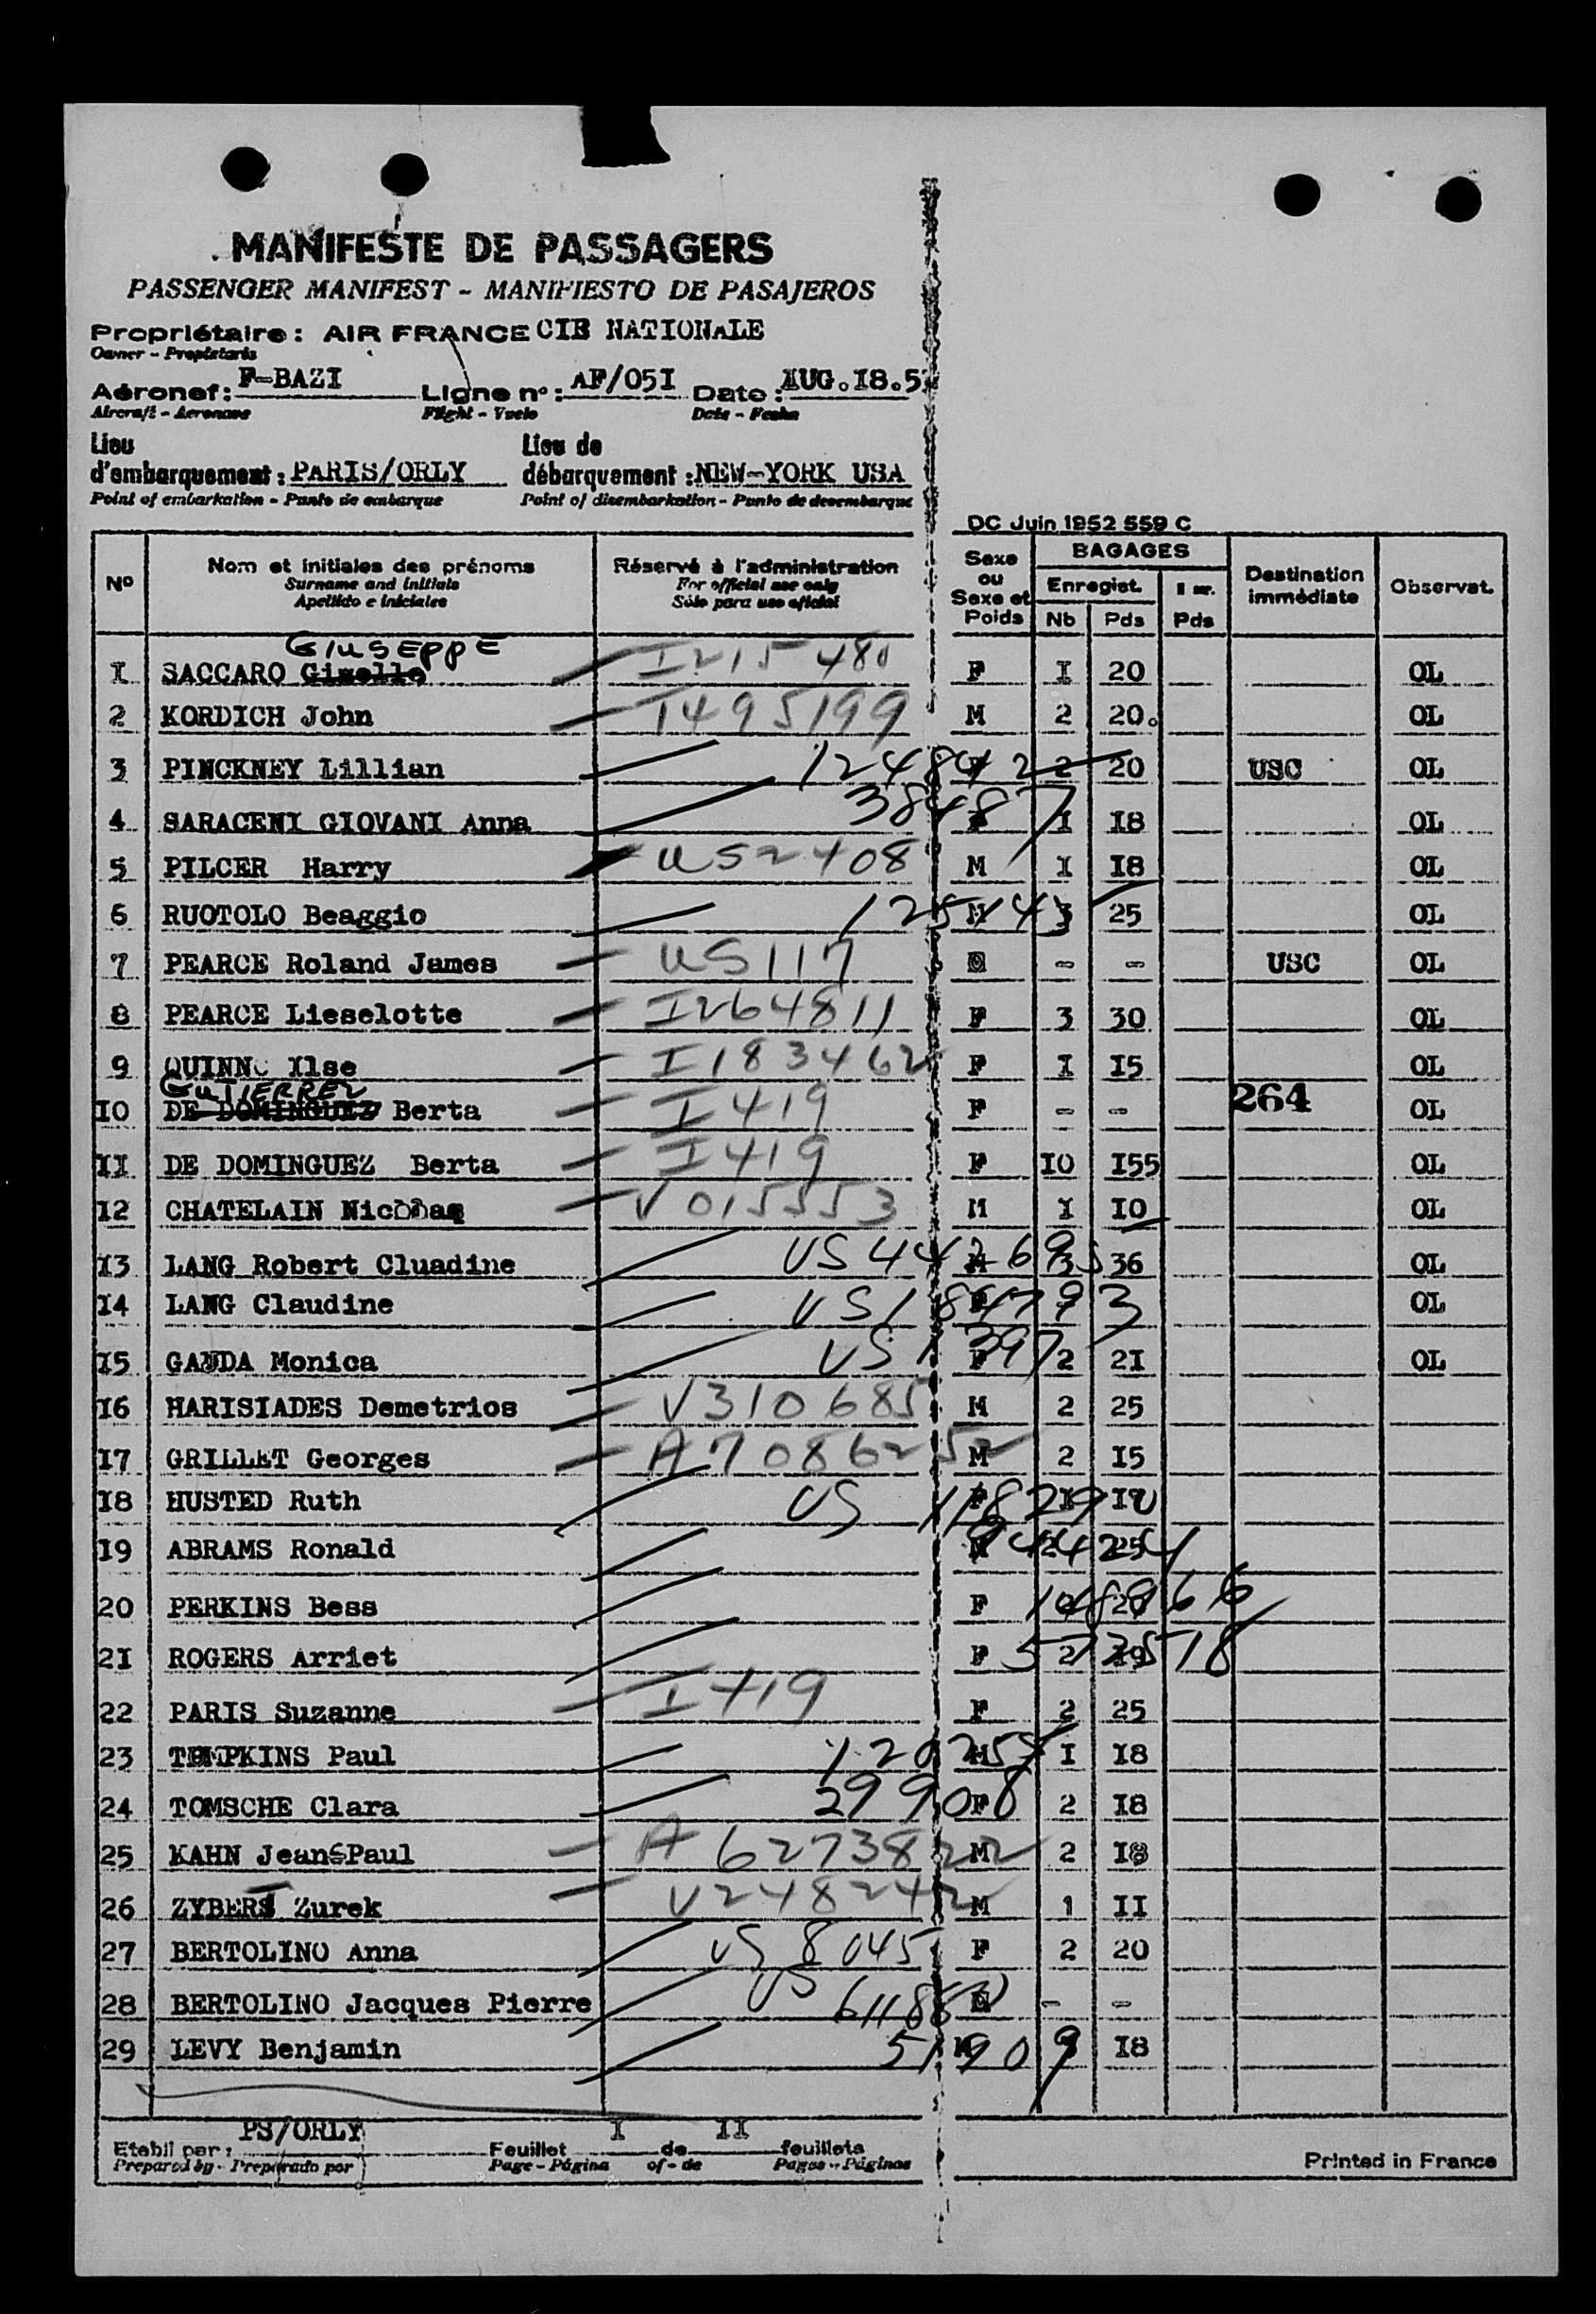 MANIFESTE DE PASSAGERS
PASSENGER MANIFEST - MANIFIESTO DE PASAJEROS
Propriétaire : AIR FRANCE CIE NATIONALE
Owner - Propietario
Aéronef : F-BAZI Ligne n° : AF/05I Date : AUG.I8.52
Aircraft - Aeronave Flight - Vuelo Date - Fecha
Lieu Lieu de
d'embarquement : PARIS/ORLY débarquement : NEW-YORK USA
Point of embarkation - Punto de embarque Point of disembarkation - Punto de desembarque
DC Juin 1952 559 C
N° Nom et initiales des prénoms Réservé à l'administration Sexe ou Sexe et Poids BAGAGES Destination immédiate Observat.
Surname and initials For official use only Enregist.
Apellido e iniciales Sólo para uso oficial Nb Pds Pds
GIUSEPPE
I SACCARO Giselle I215480 F I 20 OL
2 KORDICH John I495199 M 2 20. OL
3 PINCKNEY Lillian 124842 F 2 20 USC OL
4 SARACENI GIOVANI Anna 38487 F I I8 OL
5 PILCER Harry US2408 M I I8 OL
6 RUOTOLO Beaggio 125143 M 3 25 OL
7 PEARCE Roland James US117 - - USC OL
8 PEARCE Lieselotte I264811 F 3 30 OL
9 QUINN Ilse I183462 F I I5 OL
GUTIERREZ
I0 DE DOMINGUEZ Berta I419 F - - 264 OL
II DE DOMINGUEZ Berta I419 F I0 I55 OL
I2 CHATELAIN V015553 M I I0 OL
I3 LANG Robert Cluadine US442695 M 3 36 OL
I4 LANG Claudine US184793 OL
I5 GAUDA Monica US1397 F 2 2I OL
I6 HARISIADES Demetrios V310685 M 2 25
I7 GRILLET Georges A7086252 M 2 I5
I8 HUSTED Ruth US 11829 F I
I9 ABRAMS Ronald 944254 M 2 25
20 PERKINS Bess F
2I ROGERS Arriet F 2
22 PARIS Suzanne I419 F 2 25
23 TOMPKINS Paul M I I8
24 TOMSCHE Clara 299008 F 2 I8
25 KAHN Jean Paul A 6273822 M 2 I8
26 ZYBERT Zurek V248242 M 1 II
27 BERTOLINO Anna US 8045 F 2 20
28 BERTOLINO Jacques Pierre US 61188 - -
29 LEVY Benjamin 51909 M I8
Etabli par : PS/ORLY Feuillet I de II feuillets
Prepared by - Preparado por Page - Página of - de Pages - Páginas
Printed in France